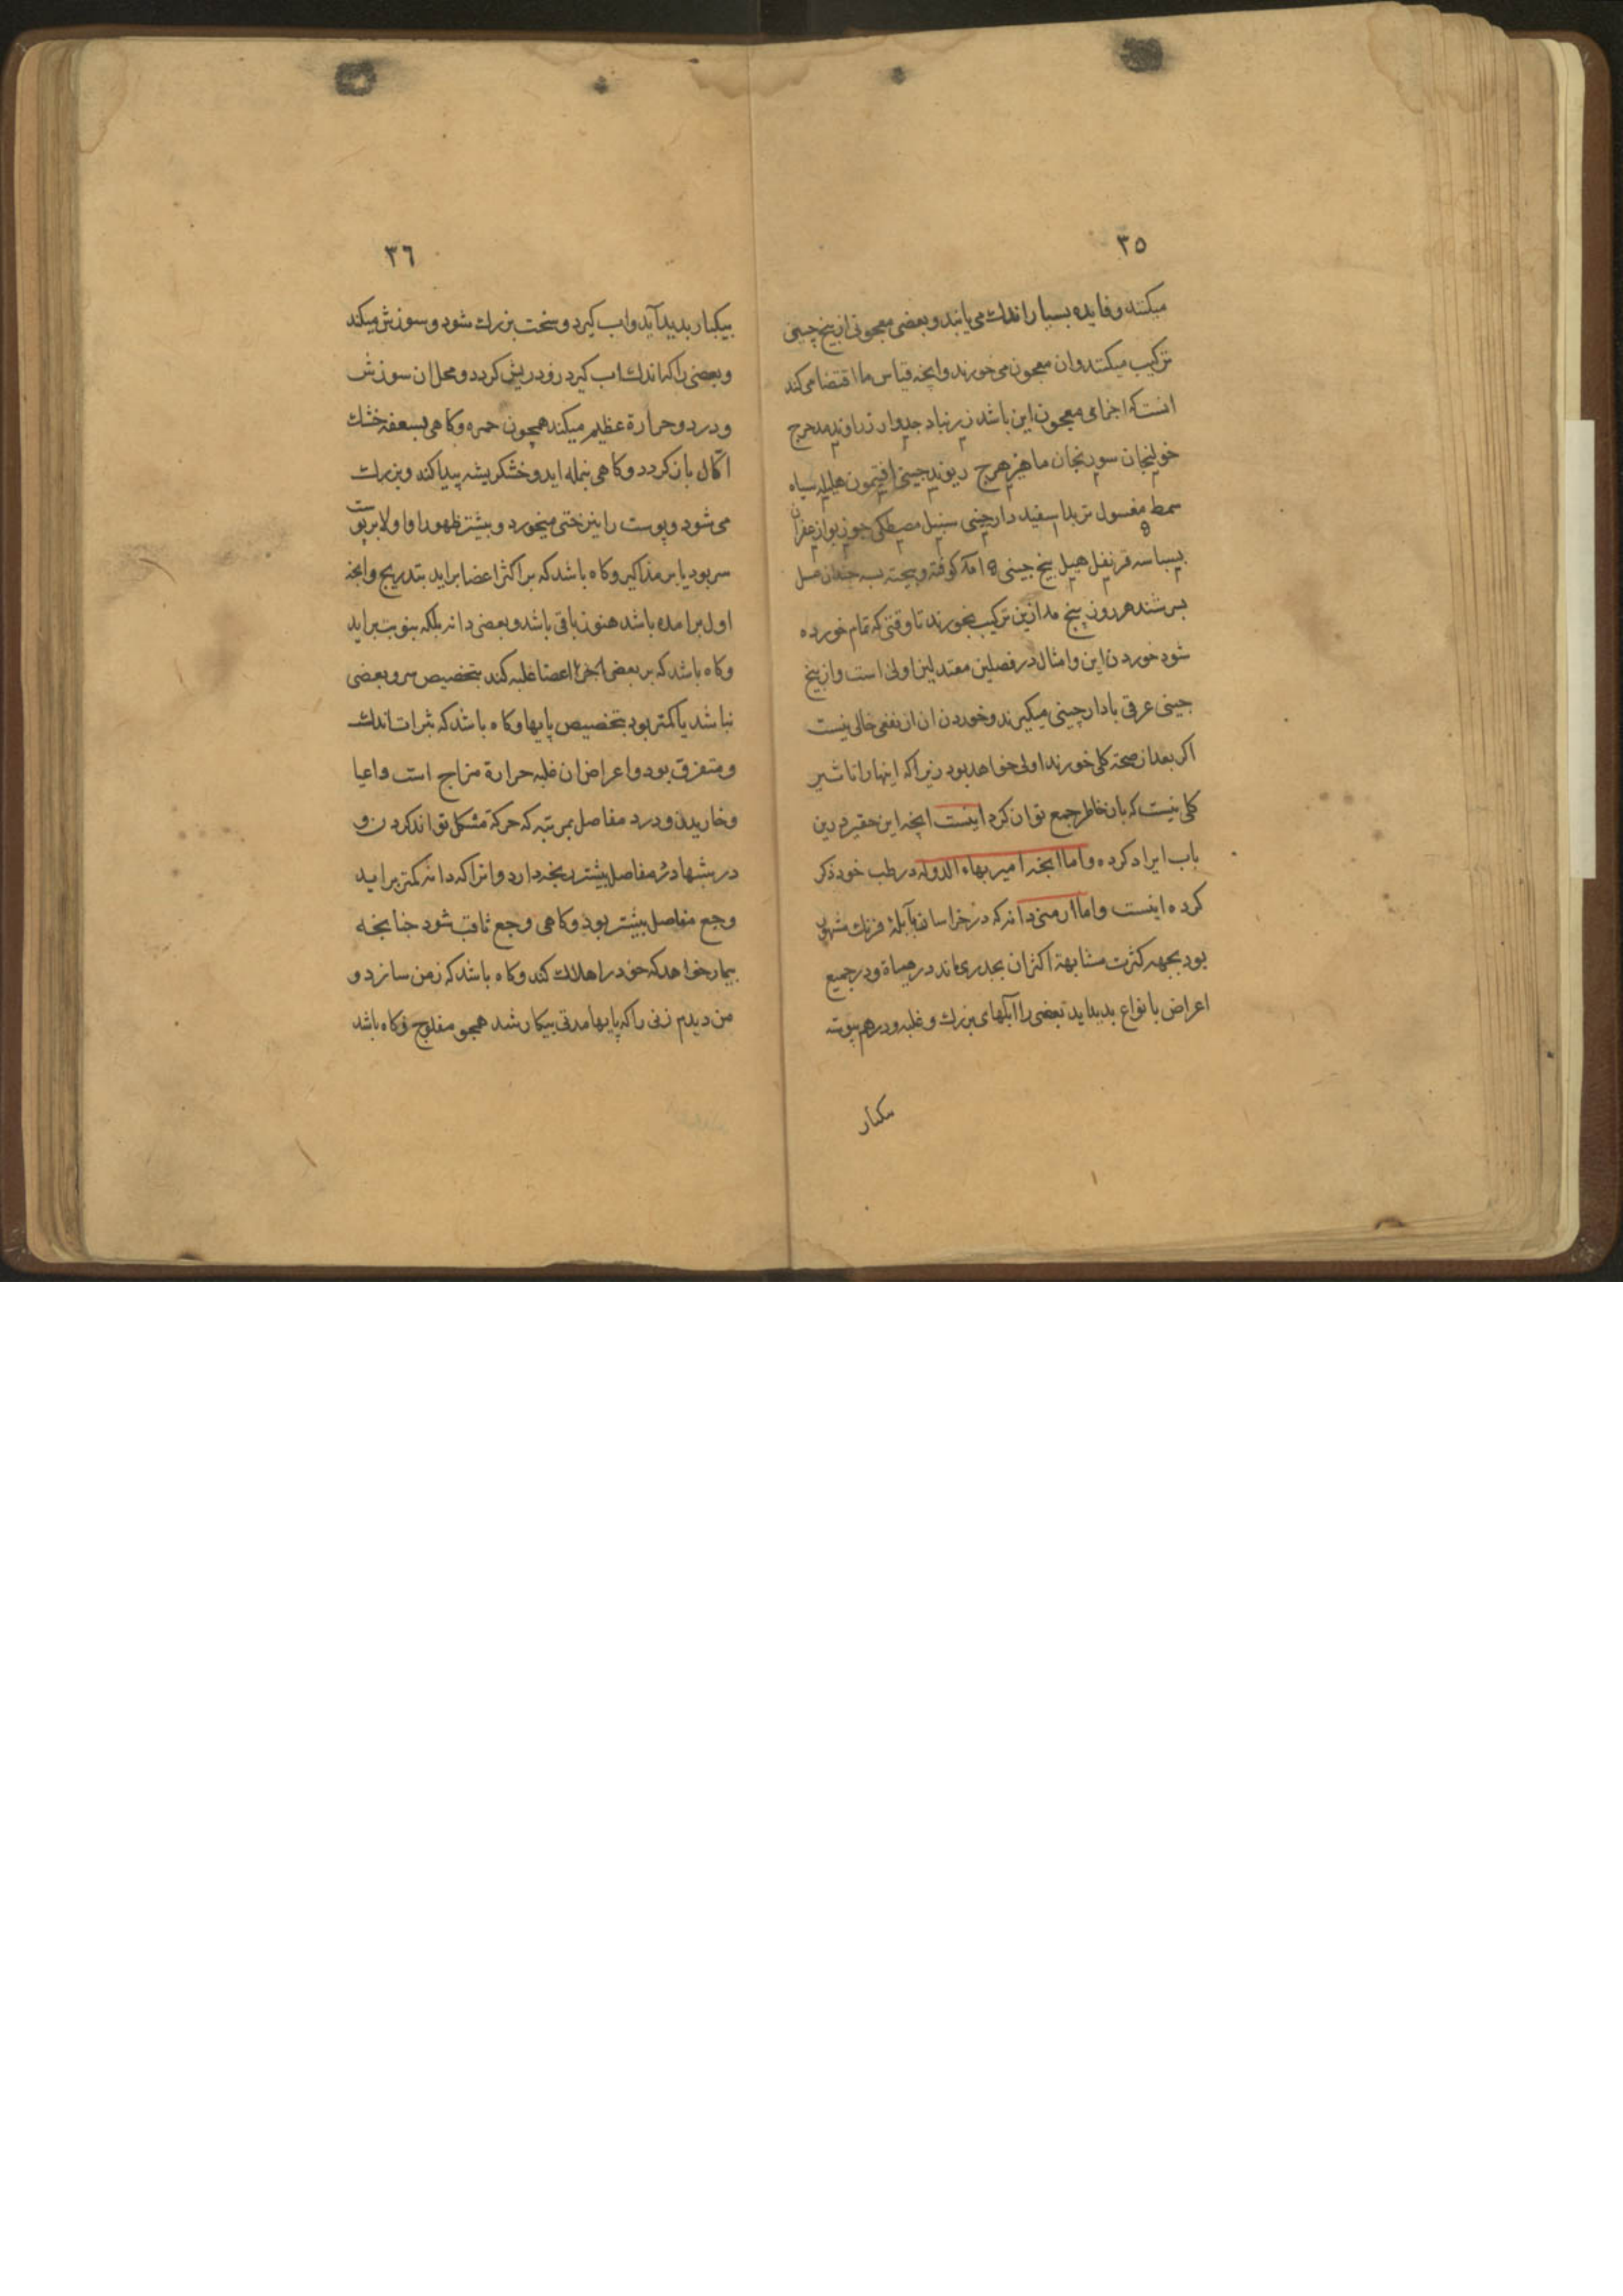 ٣٥
میکنند و فایده بسیار اندك می یابند و بعضی معجونی از بیخ چینی
ترکیب میکنند وان معجون می خورند وانچه قیاس ما اقتضا می کند
انست که اجزای معجون این باشد زرنباد جدوار زراوند مدحرج
خولنجان سورنجان ماهیزهرج ریوند چینی افتیمون هلیله سیاه
مغسول تربد سفید دارچینی سنبل مصطکی جوزبوا زعفران
بسباسه قرنفل هیل بیخ جینی کوفته و بیخته بسه چندان عسل
بسرشند هر روز پنج ازین ترکیب بخورند تا وقتی که تمام خورده
شود خوردن این و امثال در فصلین معتدلین اولی است واز بیخ
جینی عرقی با دارچینی میکیرند و خوردن ان از نفعی خالی نیست
اکر بعد از صحة کلی خورند اولی خواهد بود زیرا که اینها را تاثیر
کلی نیست که بان خاطر جمع توان کرد اینست انچه این حقیر درین
باب ایراد کرده و اما انچه امیر بهاء الدوله در طب خود ذکر
کرده اینست و اما ارمنی دانه که در خراسان بآبلۀ فرنك مشهور
بود بجهه کثرت مشابهة اکثر ان بجدری ماند در هیاة و در جمیع
اعراض بانواع بدیداید بعضی را آبلهای بزرك و غلبه و درهم پیوسته
بیکبار
٣٦
بیکبار بدید آید و اب کیرد و سخت بزرك شود و سوزش میکند
و بعضی را که اندك اب کیرد زود ریش کردد و محل ان سوزش
و درد و حرارة عظیم میکند همچون جمره و کاهی بسعفه خشك
اکال باز کردد و کاهی بنمله اید و خشکریشه پیدا کند و بزرك
می شود و پوست را نیز ختی میخورد و بیشتر ظهور او اولا بر پوست
سر بود یا بر مذاکیر و کاه باشد که بر اکثر اعضا براید بتدریج وانچه
اول برامده باشد هنوز باقی باشد و بعضی دانه بلکه بنوبت براید
و کاه باشد که بر بعضی اجزا اعضا غلبه کند بتخصیص سر و بعضی
نباشد یا کمتر بود بتخصیص پایها و کاه باشد که بثرات اندك
و متفرق بود و اعراض ان غلبه حرارة مزاج است و اعیا
و خاریدن و درد مفاصل بمرتبه که حرکة مشکل تواند کردن و
در شبها درد مفاصل بیشتر رنجه دارد و انرا که دانه کمتر براید
وجع مفاصل بیشتر بود و کاهی وجع ثاقب شود جنانچه
بیمار خواهد که خود را هلاك کند و کاه باشد که زمن سازد و
من دیدم زنی را که پایها مدتی بیکار شد همچو مفلوج و کاه باشد